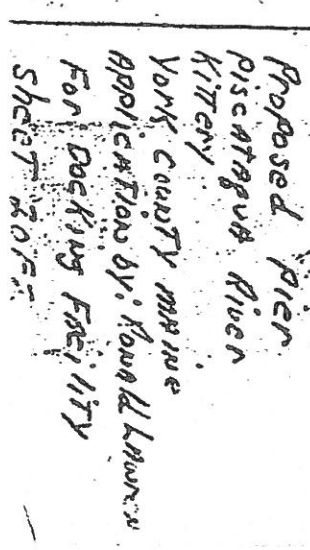 Proposed Pier
Piscataqua River
Kittery
York County Maine
Application By: Ronald
For Docking Facility
Sheet OF